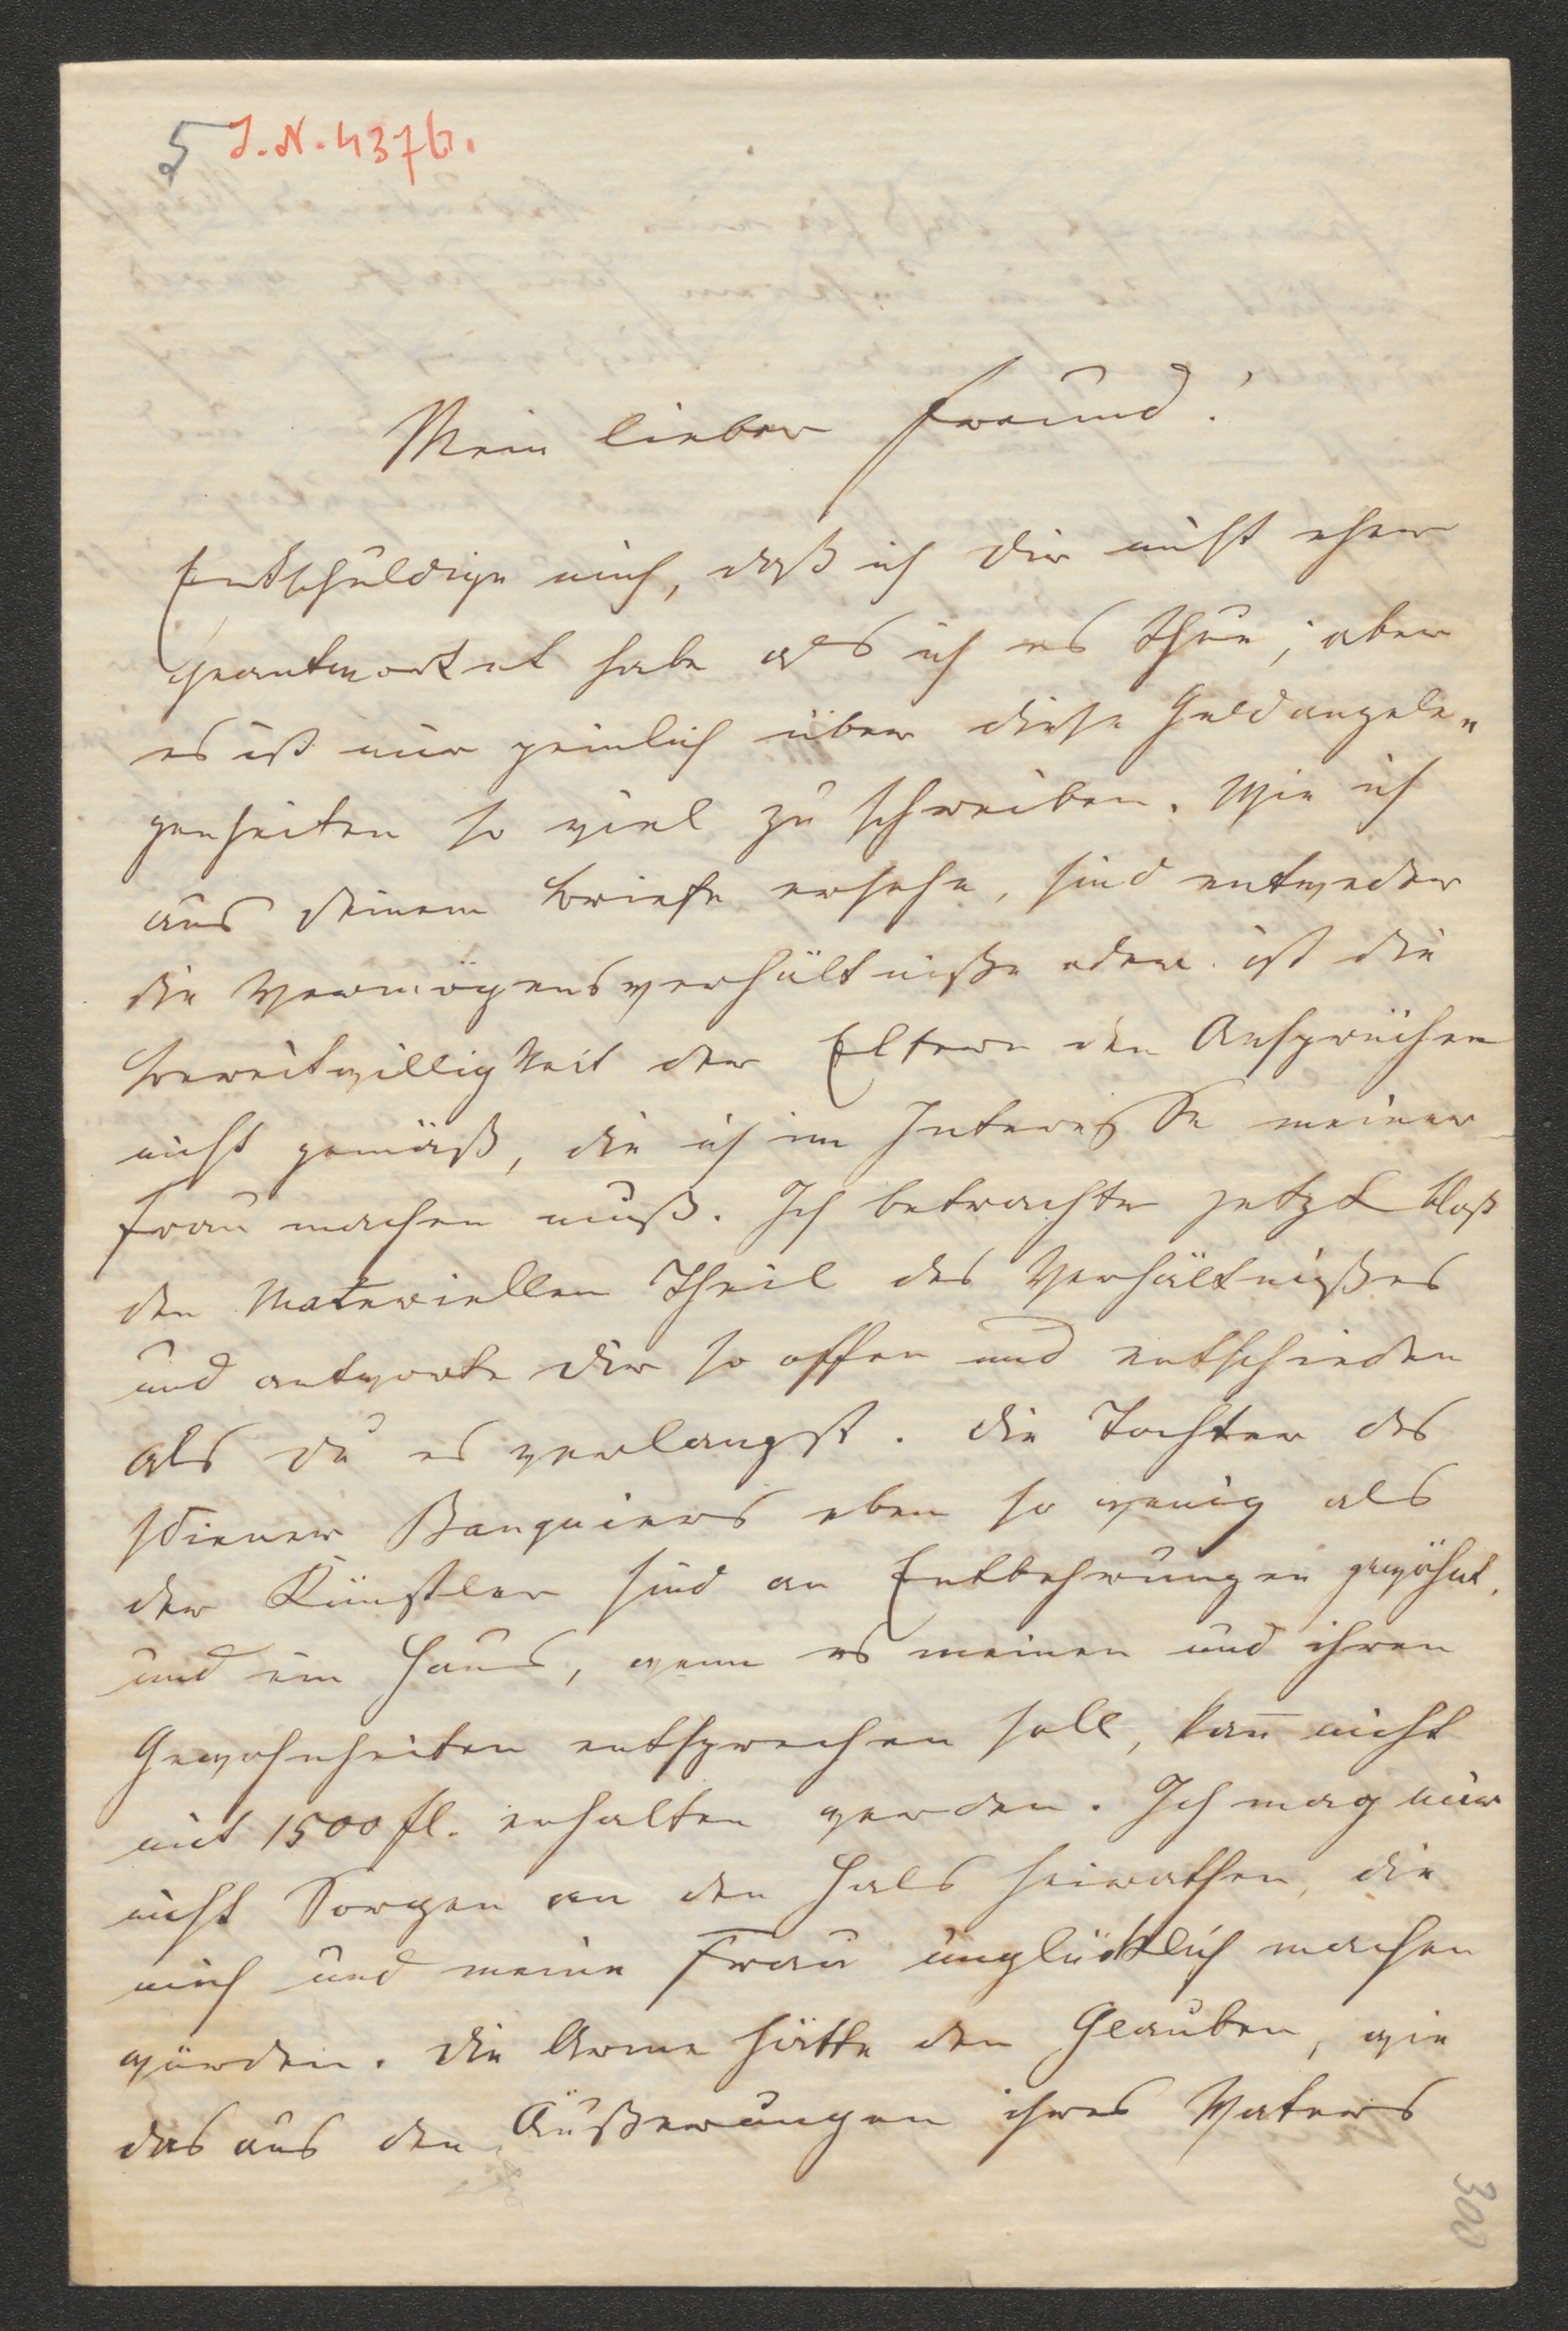 5 J.N. 4376.
Mein lieber Freund!
Entschuldige mich, daß ich Dir nicht eher
geantwortet habe als ich es thue; aber
es ist mir peinlich über diese Geldangele„
genheiten so viel zu schreiben. Wie ich
aus Deinem Briefe ersehe, sind entweder
die Vermögensverhältniße oder ist die
Bereitwilligkeit der Eltern den Ansprüchen
nicht gemäß, die ich im Interesse meiner
Frau machen muß. Ich betrachte jetzt bloß
den Materiellen Theil des Verhältnißes
und antworte Dir so offen und entschieden
als Du es verlangst. Die Tochter des
Wiener Banquiers eben so wenig als
der Künstler sind an Entbehrungen gewöhnt,
und ein Haus, wenn es meinen und ihren
Gewohnheiten entsprechen soll, kan̄ nicht
mit 1500 fl. erhalten werden. Ich mag mir
nicht Sorgen an den Hals heirathen, die
mich und meine Frau unglücklich machen
würden. Die Arme hätte den Glauben, wie
das aus den Äußerungen ihres Vaters
300